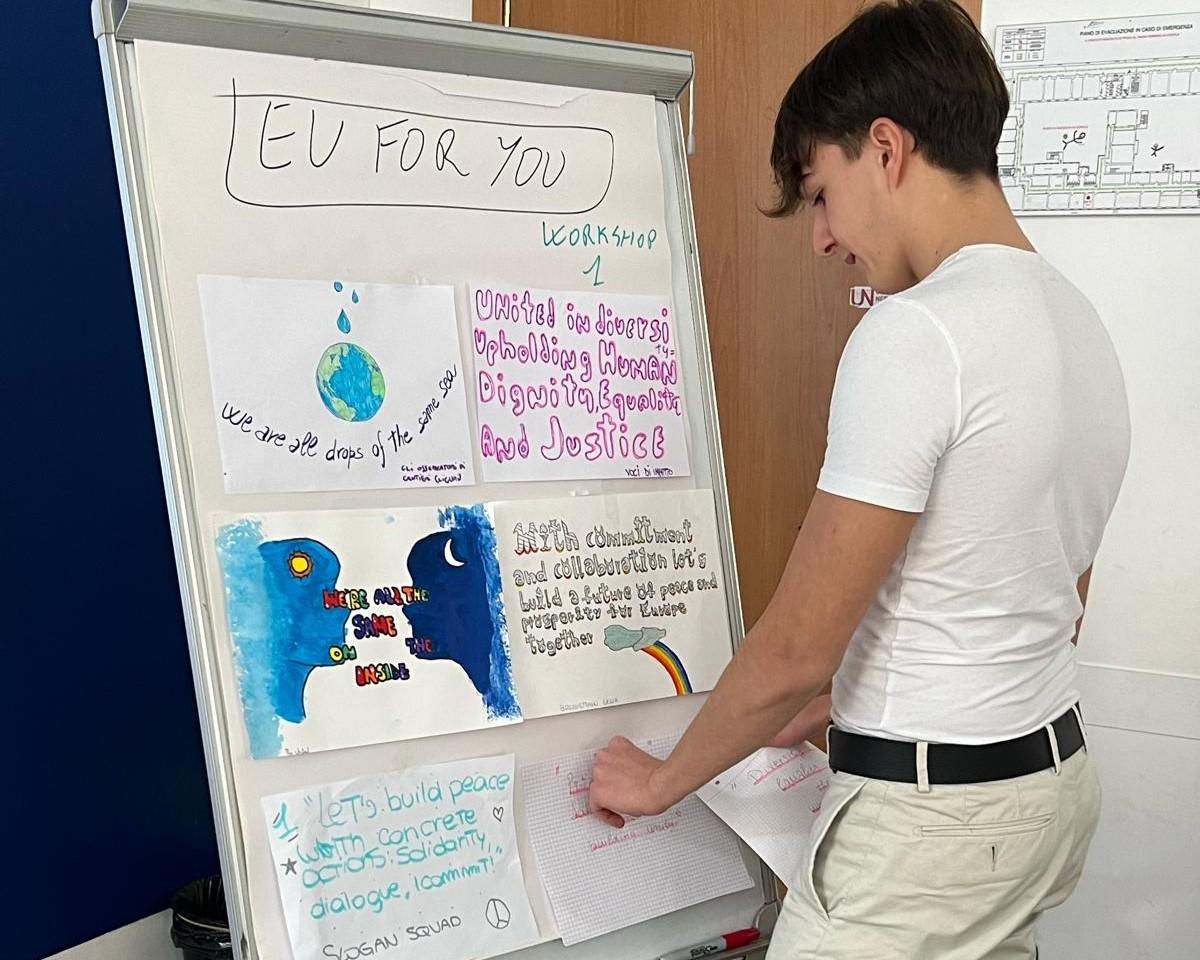 EU FOR YOU
WORKSHOP
1
We are all drops of the same sea
GLI OSSERVATORI DI
UNited in diversi
ty=
Upholding HUMAN
Dignity, Equality
And Justice
VOCI DI IMPATTO
WE'RE ALL THE
SAME
ON THE
INSIDE
With commitment
and collaboration let's
build a future of peace and
prosperity for Europe
together
1 "LET'S build peace
with concrete
actions: solidarity,
dialogue,
SLOGAN SQUAD
building unity"
"Diversity
PIANO DI EVACUAZIONE IN CASO DI EMERGENZA
UN